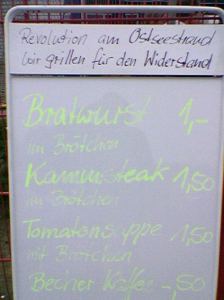 Revolution am Ostseestrand
Wir grillen für den Widerstand
Bratwurst 1,-
im Brötchen
Kammsteak 1,50
im Brötchen
Tomatensuppe 1,50
mit Brötchen
Becher Kaffee -,50